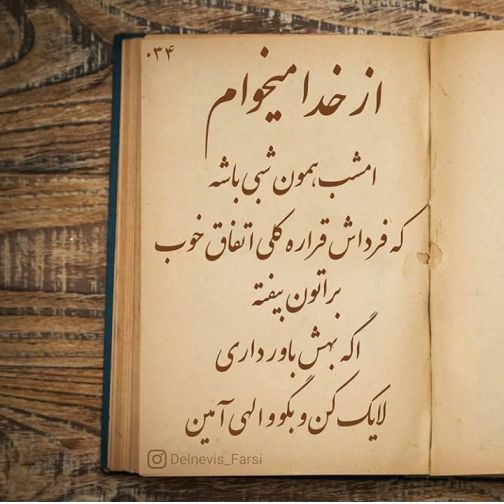 ۰۳۴
از خدا میخوام
امشب همون شبی باشه
که فرداش قراره کلی اتفاق خوب
براتون بیفته
اگه بهش باور داری
لایک کن و بگو و الهی آمین
Delnevis_Farsi